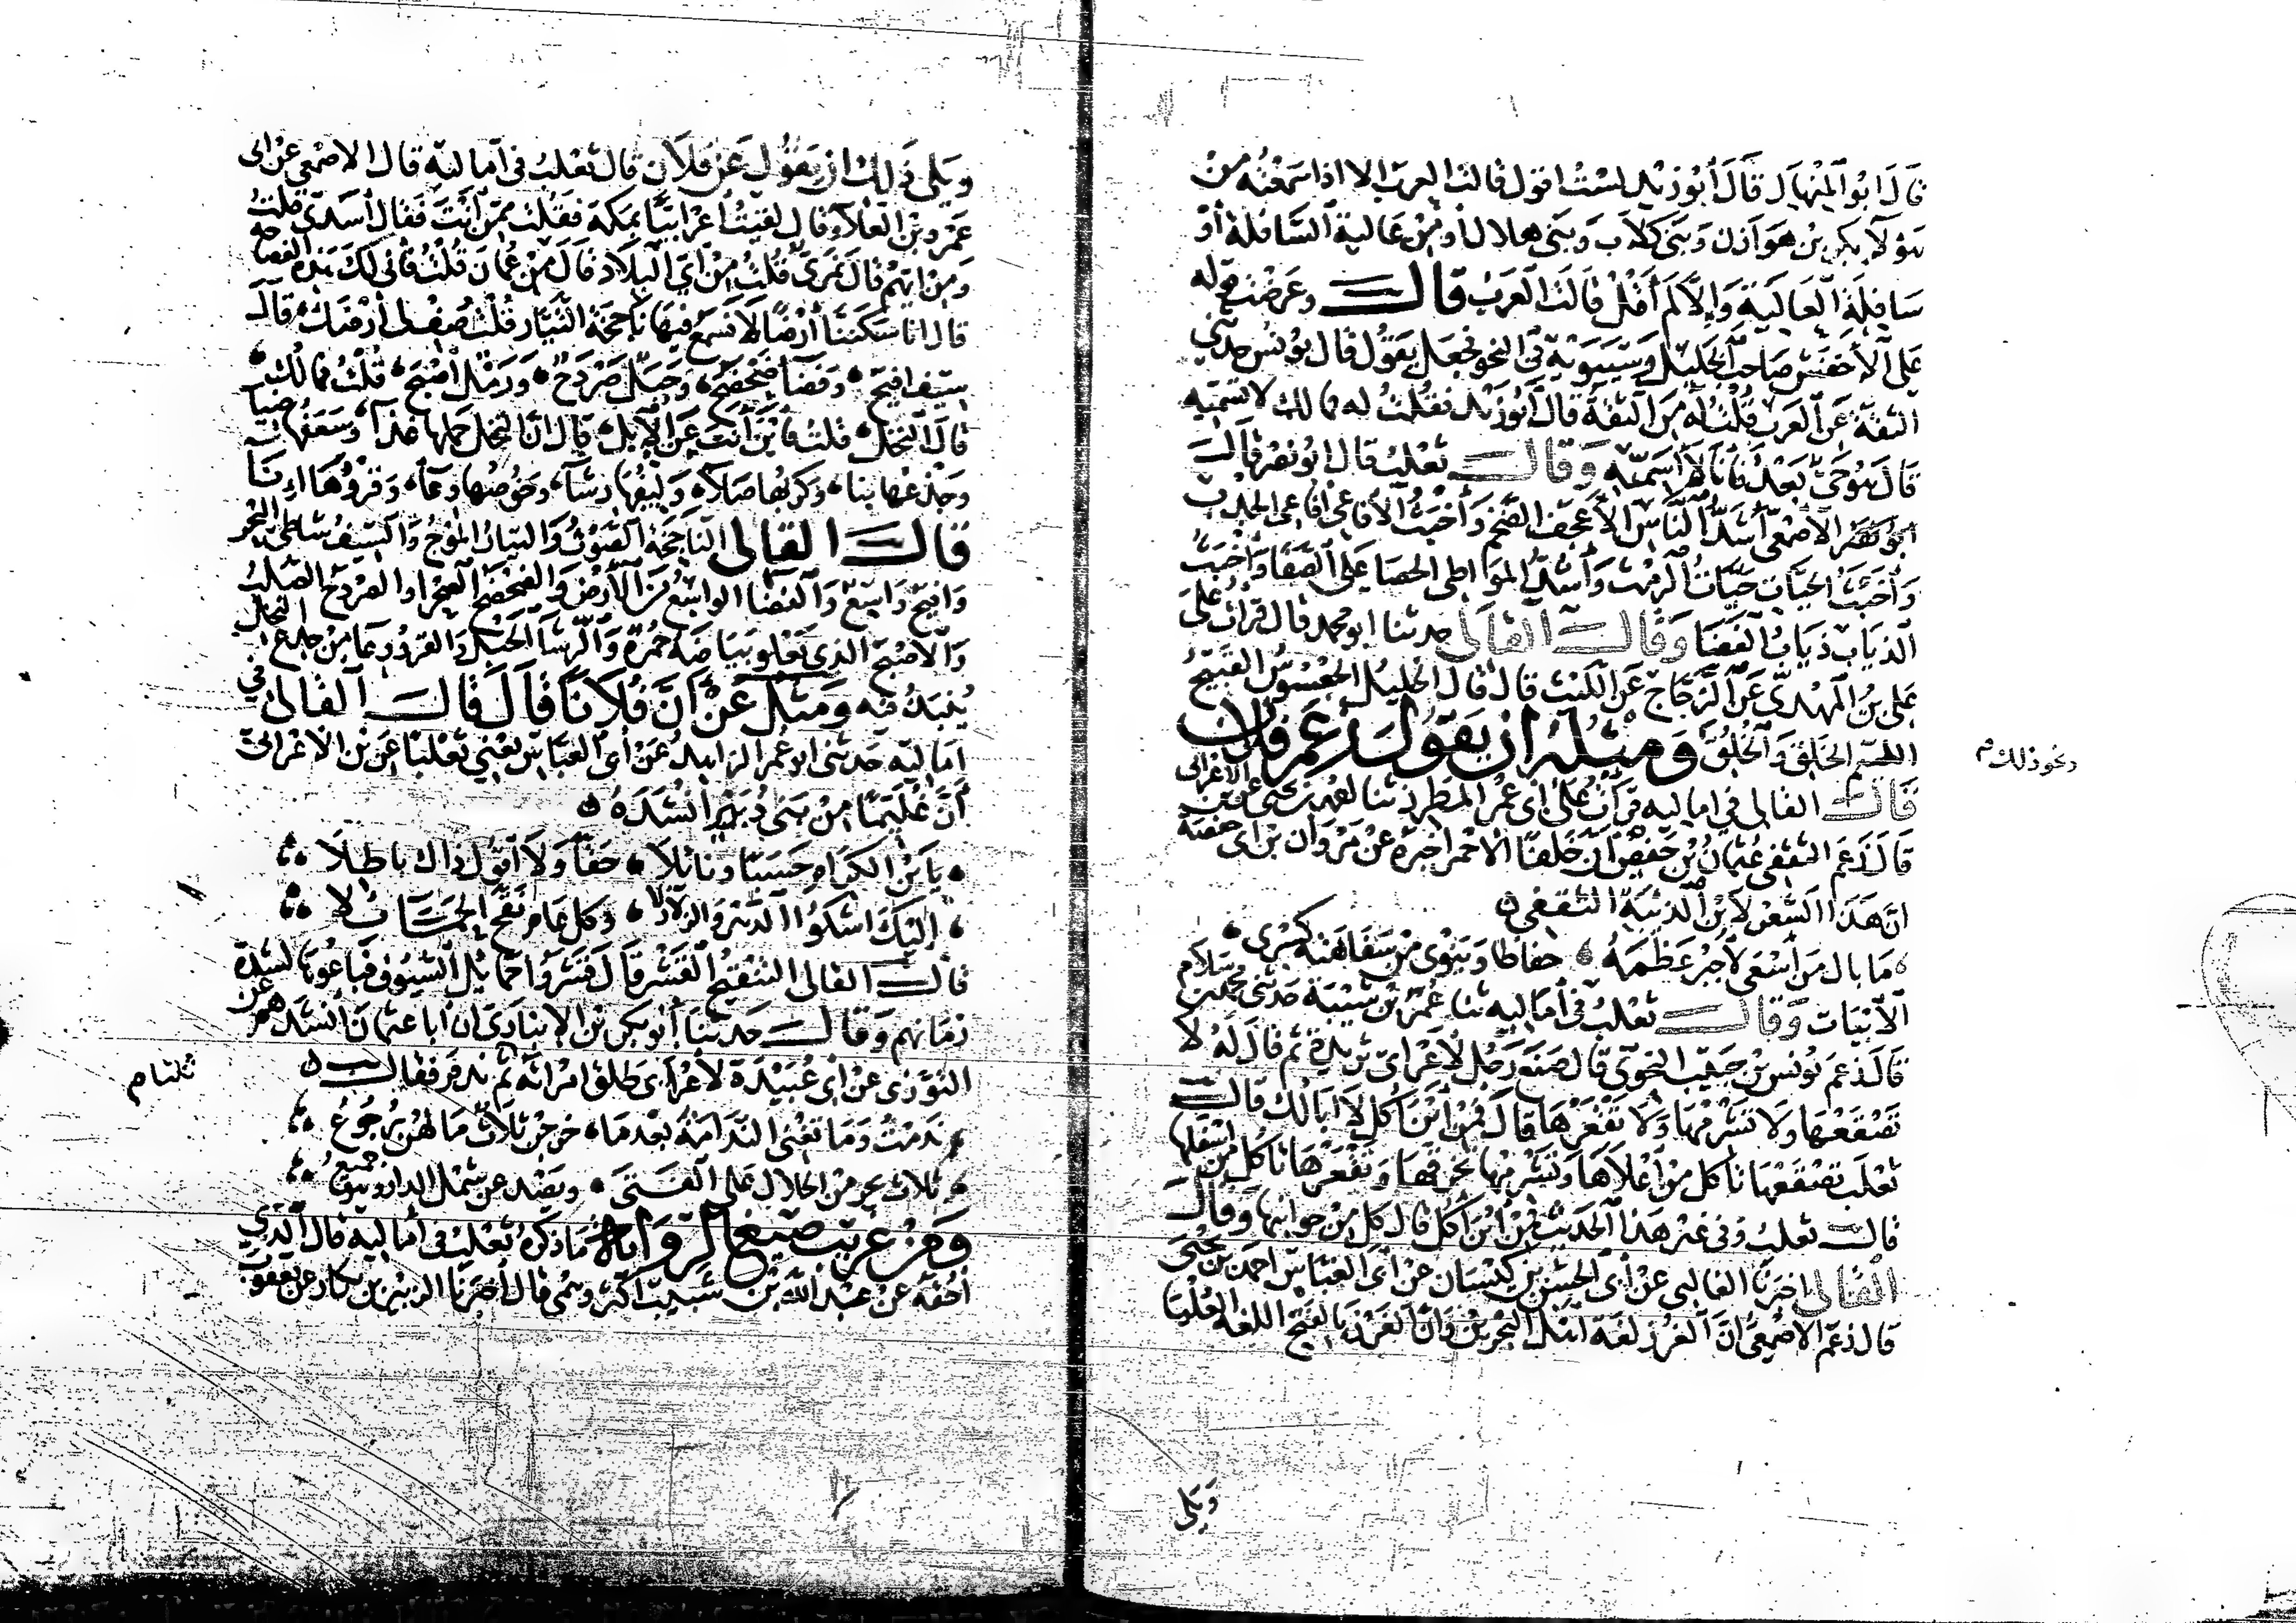 قَالَ ابُو الْمِنْهَال قَالَ أَبُو زَيْد لسْتُ اقول قالت العرب الا اذا سَمعْتُه مِنْ
هَؤلَآ بكر بْن هَوَازن وَبَنى كلَاب وَبَنى هلال أو مِنْ عَالية السَّافلة أوْ
سَافِلَة العَالية وَإلَّا لَمْ أَقُلْ قالت العَرَب قالـــ وعَرضت قوله
عَلَى الأَخفَش صَاحب الخَليل وَسيبَوَيْه فى النحو فجعَل يَقول قال يونس حدثنى
الثقة عَن العَرَب قُلْتُ لَهُ مَن الثقَة قال أبُو زَيْد فقُلتُ له فما لك لا تسَمّيه
قالَ هُوَ حَىٌّ بَعْدُ فَأنَا لَا أسَمّيه وَقالـــ ثعلب قال ابو نصر قالـــ
الاصْمَعى أشَدُّ النَّاس الأعْجَف الضخم وَأخْبَث الأفَاعى أفاعى الجدب
وَأخبَث الحيَّات حَيَّاتُ الرمث وَأشدُّ المَوَاطى الحصا عَلى الصَّفا وَأخبَث
الذياب ذيابُ الغَضَا وَقالـــ القالى حدثنا ابو محمد قال قرأت عَلى
عَلى بْن المهْدى عَن الزجَّاج عَن الليْث قالَ قال الخَليل الجعْسُوسُ القَبيحُ
اللئيم الخَلْق وَالخُلُق وَمِثلُهُ ان يَقُولَ زعَمَ فلان
ونحو ذلك م
قالـــ القالى فى اماليه قرأتُ عَلى ابى عُمر المطرز ثنا احمد بن يحيى عن ابن الاعرابى
قَالَ زَعَمَ الثقفى عُثمَانُ بْنُ حَفْص أنَّ خَلفًا الأحْمر اخبَرهُ عَنْ مَرْوَان بن ابى حفصة
انّ هَذا الشعْر لابْن الذئبَة الثقفى
مَا بال مَن أسْعَى لأجبُر عَظمَهُ ، حفاظا وَيَنوى مِنْ سَفاهَته كسْرى
الأبْيَات وَقالـــ ثعلبُ فى أماليه ثنا عُمَر بْن شَبّة حَدثنى محمد بن سلّام
قالَ زعَمَ يُونس بْنُ حَبيب النحوى قال صَنَع رَجُل لأعْرابى ثريدة ثم قالَ لَهُ لا
تَصْقَعْهَا وَلا تَشْرمْهَا وَلا تَقْعَرْهَا قال فمِنْ أيْنَ آكُل لا أبَا لَكَ قالـــ
ثعلَب تصْقعْهَا تأكل من أعْلاهَا وَتَشْرمْهَا تخرقهَا وَتَقْعَرْهَا تأكل مِن اسفلها
قالـــ ثعلبُ وَفى غيْر هَذا الحَديث فمن أيْنَ آكُل قال كُل مِنْ جوانبها وَقالـــ
القالى اخبرنَا الغالبى عَنْ أبى الحسَن بن كيْسَان عَنْ أبى العَبَّاس احمد بن يَحْيَى
قال زعَمَ الاصْمَعىّ انّ الغَرْز لغة اهْل البَحْرين وَأنَّ الغَرَز بالفتح اللغة العُليا
وَيَلى
وَيَلى ذلِكَ ان يَقُولَ عَنْ فلَان قال ثعْلب فى أماليه قال الاصْمَعى عَنْ ابى
عَمْرو بْن العَلآء قال لقيتُ أعْرابيًّا بمَكة فقُلت ممَّنْ أنْتَ فَقال أسَدىّ قلتُ
وَمِنْ ايهُم قالَ نَمَرىٌّ قُلتُ مِنْ أىّ البلَاد قالَ مِنْ عُمَانَ قُلْتُ فأنى لكَ هذه الفصاحة
قال انا سَكَنَّا أرْضًا لَا نَسْمَعُ فيهَا نَاجخَة التيَّار قُلْتُ صِفْ لى أرْضَكَ قالَ
سِيْفٌ افيَح ، وَفضآ ضحضَح ، وَجَبَل صَرْدَحٌ ، وَرَمْل أصْبَح ، قُلْتُ فما لك
قالَ النخْل ، قلتُ فأيْنَ أنتَ عَن الإبل ، قال انَّ النخل حملها غذآ ، وَسَعَفُهَا ضيآ
وَجذعُهَا بنا ، وَكرَبُهَا صَلآ ، وَليفُهَا رشآ ، وَخُوصُهَا وعآ ، وَقَرْوُهَا إِنآ
قالـــ القالى النَّاجخَة الصَّوْتُ وَالتيَّارُ المَوْجُ وَالسّيفُ شَاطئُ البَحْر
وَافيَحُ وَاسِعٌ وَالفضآ الوَاسِعُ مِن الأَرْض وَالضحْضَح الصحْرا والصردَح الصُّلبُ
وَالأصْبَحُ الذى تَعْلو بَيَاضَه حُمْرَة وَالرشآ الحَبْل وَالقَرْوُ وِعآ مِنْ جذع النخل
يُنبَذُ فيه وَمِثْلُ عَنْ أنَّ فُلَانًا قَالَ قالـــ القالى فى
اماليه حَدثنى ابو عُمر الزاهِد عَنْ أبى العَبَّاس يَعْنى ثعْلبًا عَن بْن الاعْرابىّ
أنَّ غُلَيّمًا مِنْ بَنى دُبَيْر أنْشَدَهُ
يَا بْنَ الكرَام حَسَبًا وَنَائلَا ، حَقًّا وَلَا أقولُ ذاك باطلَا
إلَيْكَ اشكُوا الدَّهْرَ وَالزلَازلَا ، وَكل عَام نَقَّحَ الحمَائلَا
قالـــ القالى التنْقيحُ القَشْر قالَ قَشَرُوا حَمَائلَ السُّيُوف فبَاعُوهَا لشدَّة
زمَانهم وَقالـــ حَدثنَا أبُو بكر بْن الانبَارى ان أبا عثمَان أنشَدَهم عَن
التوّزى عَنْ أبى عُبَيْدَة لأعْرَابى طلق امْرَأته ثم نَدمَ فقالـــ
ثلثا م
نَدمْتُ وَمَا تُغْنى النَّدَامَةُ بَعْدمَا ، خرجْن ثلاثٌ مَا لهُنَّ رُجُوعُ
ثلاث يحرمن الحلَال عَلى الفَتَى ، ويَصْدعنَ شمْل الدار وهو جميعُ
وَمِنْ غريب صيَغ الروَاية مَا ذكرَهُ ثعْلب فى أماليه قال الذى
أحُقّهُ عَنْ عبْد الله بْن شبيب اكبَر وهْمى قال أخبَرنَا الزبيْر بن بكار عن يعقوب